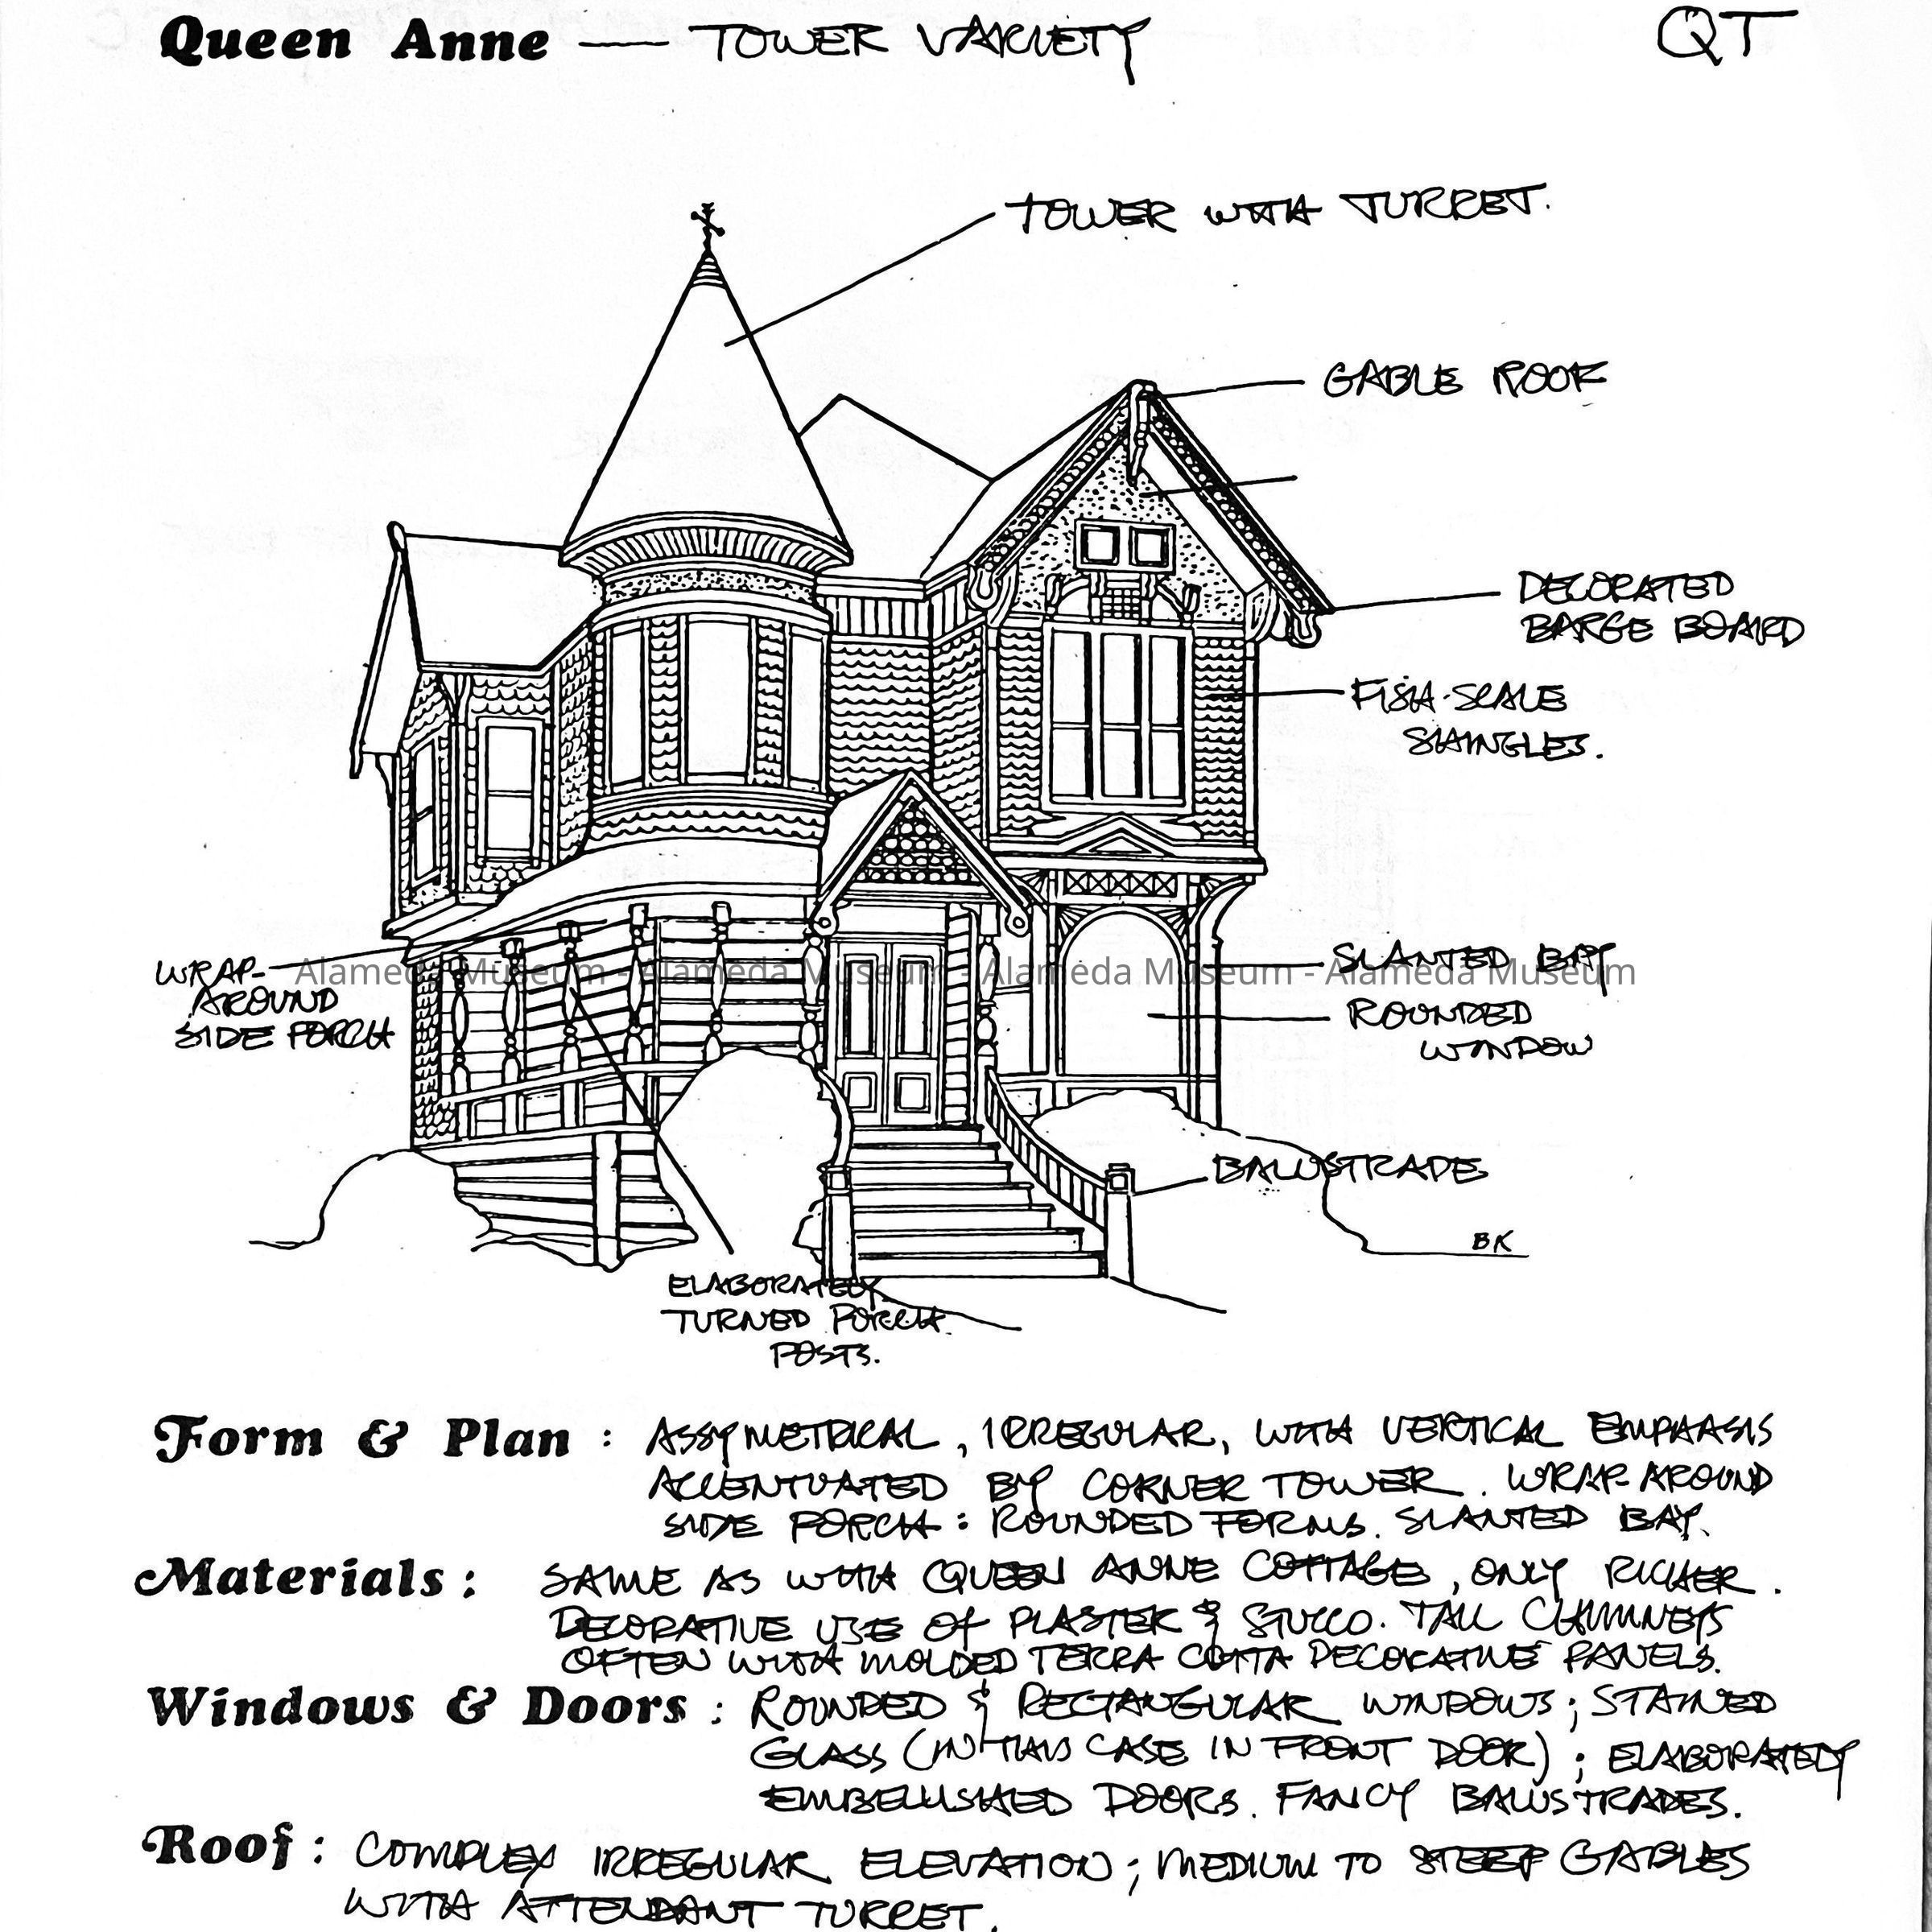 Queen Anne — TOWER VARIETY
QT
TOWER WITH TURRET.
GABLE ROOF
DECORATED
BARGE BOARD
FISH-SCALE
SHINGLES.
WRAP-
AROUND
SIDE PORCH
Alameda Museum - Alameda Museum - Alameda Museum - Alameda Museum
SLANTED BAY
ROUNDED
WINDOW
BALUSTRADE
BK
ELABORATELY
TURNED PORCH
POSTS.
Form & Plan : ASSYMETRICAL, IRREGULAR, WITH VERTICAL EMPHASIS
ACCENTUATED BY CORNER TOWER. WRAP-AROUND
SIDE PORCH : ROUNDED FORMS. SLANTED BAY.
Materials : SAME AS WITH QUEEN ANNE COTTAGE, ONLY RICHER.
DECORATIVE USE OF PLASTER & STUCCO. TALL CHIMNEYS
OFTEN WITH MOLDED TERRA COTTA DECORATIVE PANELS.
Windows & Doors : ROUNDED & RECTANGULAR WINDOWS; STAINED
GLASS (IN THIS CASE IN FRONT DOOR) ; ELABORATELY
EMBELLISHED DOORS. FANCY BALUSTRADES.
Roof : COMPLEX IRREGULAR ELEVATION; MEDIUM TO STEEP GABLES
WITH ATTENDANT TURRET.